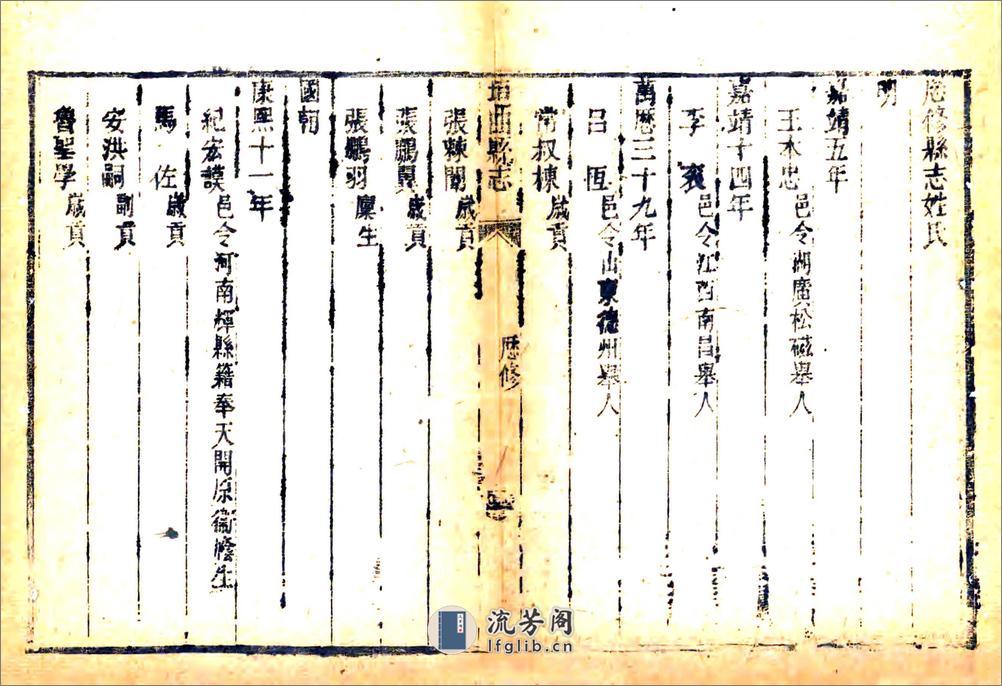 厯修縣志姓氏
明
嘉靖五年
王木忠 邑令湖廣松磁舉人
嘉靖十四年
李 邑令江西南昌舉人
萬厯三十九年
呂恆 邑令山東德州舉人
常叔棟 歲貢
垣曲縣志
厯修
張棘闈 歲貢
張鵬翼 歲貢
張鵬羽 廩生
國朝
康熙十一年
紀宏謨 邑令河南輝縣籍奉天開原衞廕生
馬佐 歲貢
安洪嗣 副貢
魯聖學 歲貢
流芳阁
lfglib.cn